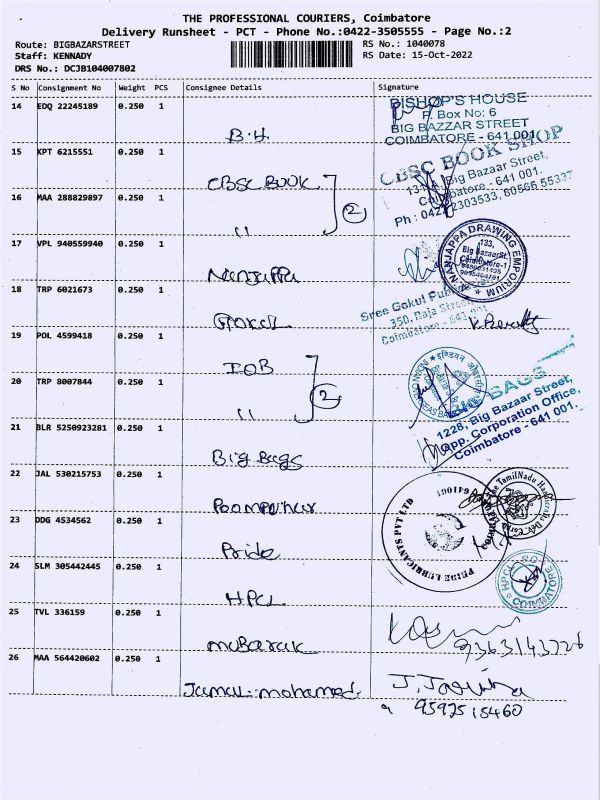 THE PROFESSIONAL COURIERS, Coimbatore
Delivery Runsheet - PCT - Phone No.:0422-3505555 - Page No.:2
Route: BIGBAZARSTREET
RS No.: 1040078
Staff: KENNADY
RS Date: 15-Oct-2022
DRS No.: DCJB104007802
S No Consignment No Weight PCS Consignee Details Signature
14 EDQ 22245189 0.250 1
B.H
BISHOP'S HOUSE
P. Box No: 6
BIG BAZZAR STREET
COIMBATORE - 641 001
15 KPT 6215551 0.250 1
CBSC BOOK
CBSC BOOK SHOP
Big Bazaar Street,
Coimbatore - 641 001.
Ph : 0422 2303533, 80566 55337
16 MAA 288829897 0.250 1
" 2
17 VPL 940559940 0.250 1
Nanjappa
NANJAPPA DRAWING EMPORIUM
133,
Big Bazaar St.
Coimbatore-1
18 TRP 6021673 0.250 1
Gokul
Sree Gokul
350, Raja Street
Coimbatore - 641 001
19 POL 4599418 0.250 1
IOB
20 TRP 8007844 0.250 1
" 2
21 BLR 5250923281 0.250 1
Big Bags
BIG BAGS
1228, Big Bazaar Street,
Opp. Corporation Office,
Coimbatore - 641 001.
22 JAL 530215753 0.250 1
Poompuhar
The TamilNadu
23 DDG 4534562 0.250 1
Pride
PRIDE LUBRICANTS PVT LTD
641001
24 SLM 305442445 0.250 1
HPCL
COIMBATORE
25 TVL 336159 0.250 1
mubarak
9363143726
26 MAA 564420602 0.250 1
Jamal. mohamed.
9597518460